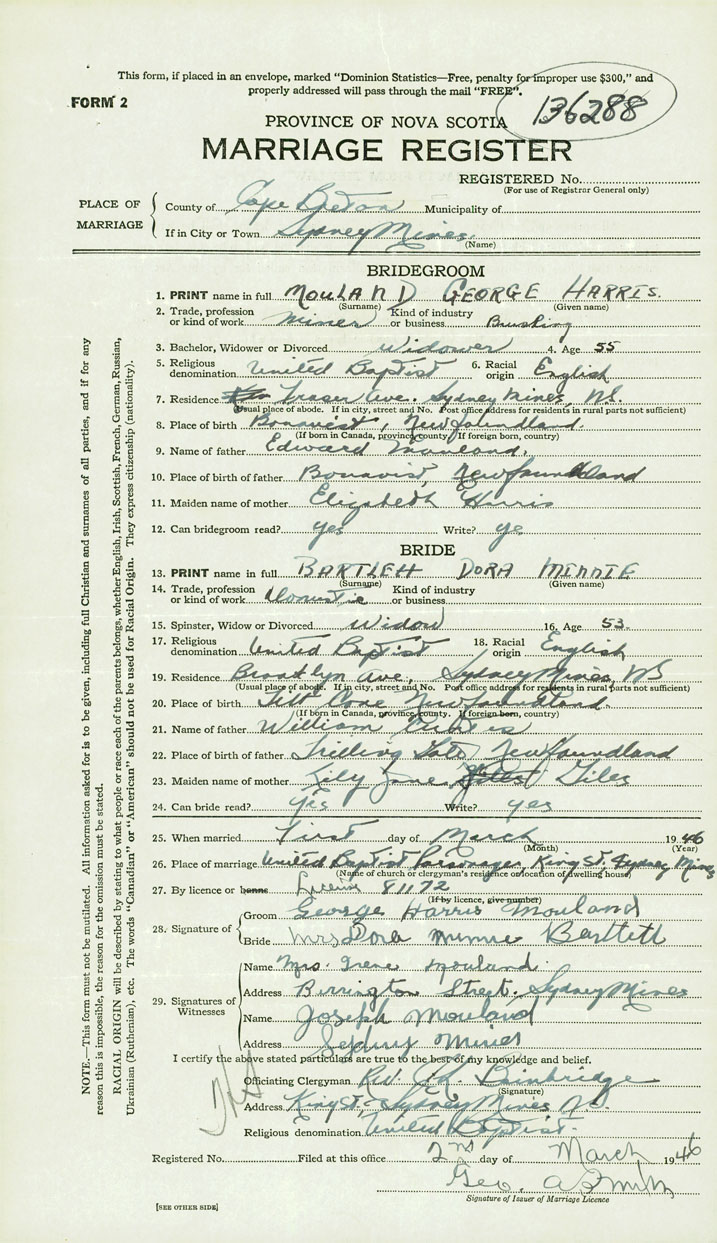 This form, if placed in an envelope, marked “Dominion Statistics—Free, penalty for improper use $300,” and
properly addressed will pass through the mail “FREE”.
FORM 2
136288
PROVINCE OF NOVA SCOTIA
MARRIAGE REGISTER
REGISTERED No.
(For use of Registrar General only)
PLACE OF MARRIAGE
County of Cape Breton Municipality of
If in City or Town Sydney Mines
(Name)
BRIDEGROOM
1. PRINT name in full MOULAND GEORGE HARRIS.
(Surname) (Given name)
2. Trade, profession or kind of work Miner Kind of industry or business
3. Bachelor, Widower or Divorced Widower 4. Age 55
5. Religious denomination United Baptist 6. Racial origin English
7. Residence Fraser Ave. Sydney Mines, N.S.
(Usual place of abode. If in city, street and No. Post office address for residents in rural parts not sufficient)
8. Place of birth Bonavist, Newfoundland
(If born in Canada, province, county. If foreign born, country)
9. Name of father Edward Mouland.
10. Place of birth of father Bonavist, Newfoundland
11. Maiden name of mother Elizabeth Harris
12. Can bridegroom read? yes Write? ye
BRIDE
13. PRINT name in full BARTLETT DORA MINNIE
(Surname) (Given name)
14. Trade, profession or kind of work Domestic Kind of industry or business
15. Spinster, Widow or Divorced Widow 16. Age 53.
17. Religious denomination United Baptist 18. Racial origin English
19. Residence Brooklyn Ave., Sydney Mines, NS
(Usual place of abode. If in city, street and No. Post office address for residents in rural parts not sufficient)
20. Place of birth Tilt Cove Newfoundland.
(If born in Canada, province, county. If foreign born, country)
21. Name of father William
22. Place of birth of father Newfoundland
23. Maiden name of mother Lily Jane Giles
24. Can bride read? yes Write? yes
25. When married First day of March 1946
(Month) (Year)
26. Place of marriage United Baptist Parsonage, King St. Sydney Mines
(Name of church or clergyman's residence or location of dwelling house)
27. By licence or banns License 81172
(If by licence, give number)
28. Signature of
Groom George Harris Mouland
Bride Mrs Dora Minnie Bartlett
29. Signatures of Witnesses
Name Mrs. Irene Mouland.
Address Street. Sydney Mines
Name Joseph Mouland
Address Sydney Mines
I certify the above stated particulars are true to the best of my knowledge and belief.
Officiating Clergyman Rev. Bainbridge
(Signature)
Address King St., Sydney Mines N.S.
Religious denomination United Baptist.
Registered No. Filed at this office 2nd day of March 1946
Geo. A Smith
Signature of Issuer of Marriage Licence
[SEE OTHER SIDE]
NOTE.—This form must not be mutilated. All information asked for is to be given, including full Christian and surnames of all parties, and if for any
reason this is impossible, the reason for the omission must be stated.
RACIAL ORIGIN will be described by stating to what people or race each of the parents belongs, whether English, Irish, Scottish, French, German, Russian,
Ukrainian (Ruthenian), etc. The words “Canadian” or “American” should not be used for Racial Origin. They express citizenship (nationality).